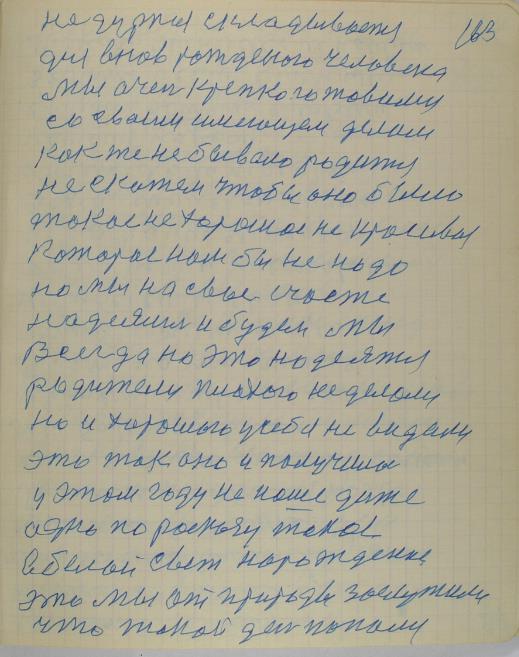 163
не дурния складывается
для внов рожденого человека
Мы очен крепко готовими
со своим имеющем делам
как же не бывало родится
не скажем чтобы оно было
такое не хорошое не красивыя
которое нам бы не надо
но мы на свое счасте
надеялис и будем мы
Всегда на это надеятся
родители плохого неделали
но и хорошого у себя не видали
это так оно и получилос
у этом году не наше даже
одно по роскозу такое
в белой свет нарождение
это мы от природы заслужили
что такой ден попали